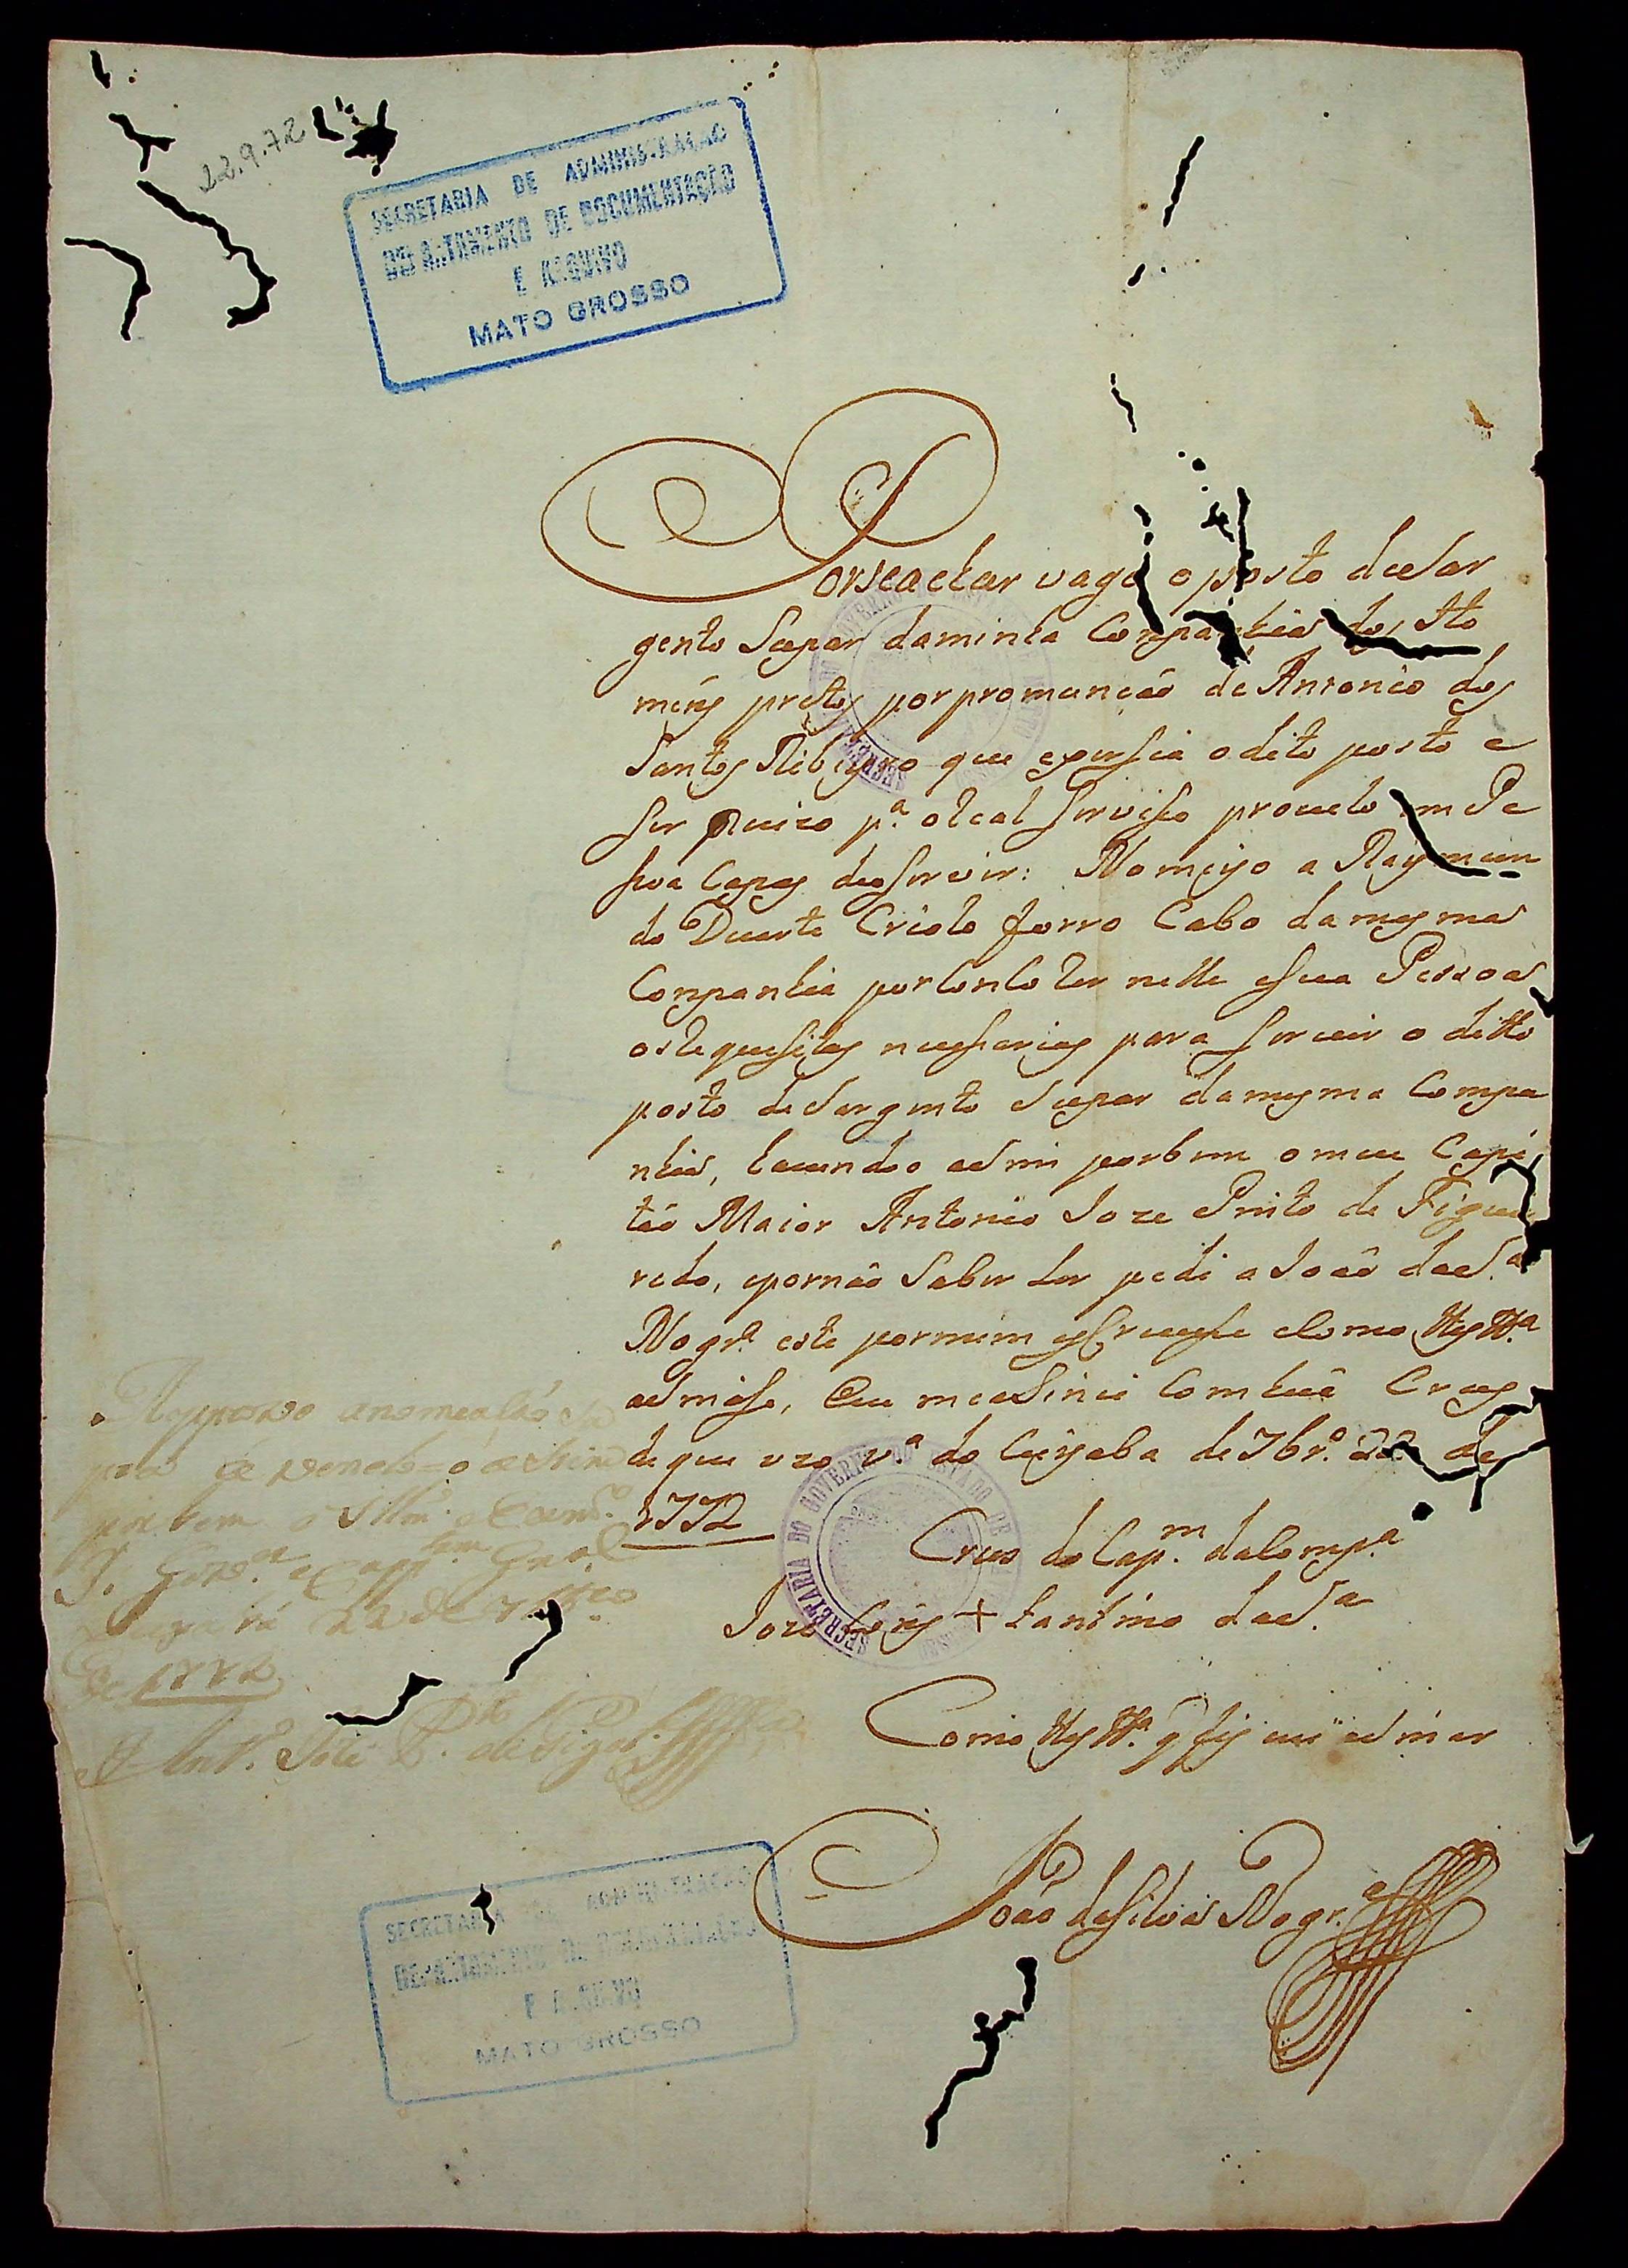 22.9.72
SECRETARIA DE ADMINISTRAÇÃO
DEPARTAMENTO DE DOCUMENTAÇÃO
E ARQUIVO
MATO GROSSO
Por se achar vago o posto de Sar
gento Supar da minha Companhia dos Ho
meñs pretos por promunçaõ de Antonio dos
Santos Ribeyro que exersia o dito posto e
ser Preciso p.ª o Real servisso provelo em Pe
soa Capas de o servir: Nomeyo a Raymun
do Duarte Criolo forro Cabo da mesma
Companhia por Conhoser nelle e sua Pessoa
os Requesitos nesesarios para servir o ditto
posto de Sargento Supar da mesma Compa
nhia, havendo o asim por bem o meu Capi
tão Maior Antonio Joze Pinto de Figuei
redo, e por não Saber Ler pedi a João da S.ª
Nogr.ª este por mim escrevese e Como test.ª
asinase, Eu me asinei Com huã Crus
de que uzo v.ª do Cuyaba de 7br.º 22 de
1772
Crus do Cap.m da Comp.ª
Joze Gois + tantino da S.ª
Como test.ª q̃ fis eu asinar
João da Silva Nogr.ª
Approvo a nomeação Su
pra havendo=o asim
por bem o Illm.º e Exm.º
S. Gov.or e Capp.am Gn.al
Cuyabá 22 de 7br.o
de 1772
Ant.º José P.to de Figd.º
SECRETARIA DO GOVERNO DO ESTADO DE MATO GROSSO
SECRETARIA DO GOVERNO DO ESTADO DE MATO GROSSO
SECRETARIA DE ADMINISTRAÇÃO
DEPARTAMENTO DE DOCUMENTAÇÃO
E ARQUIVO
MATO GROSSO